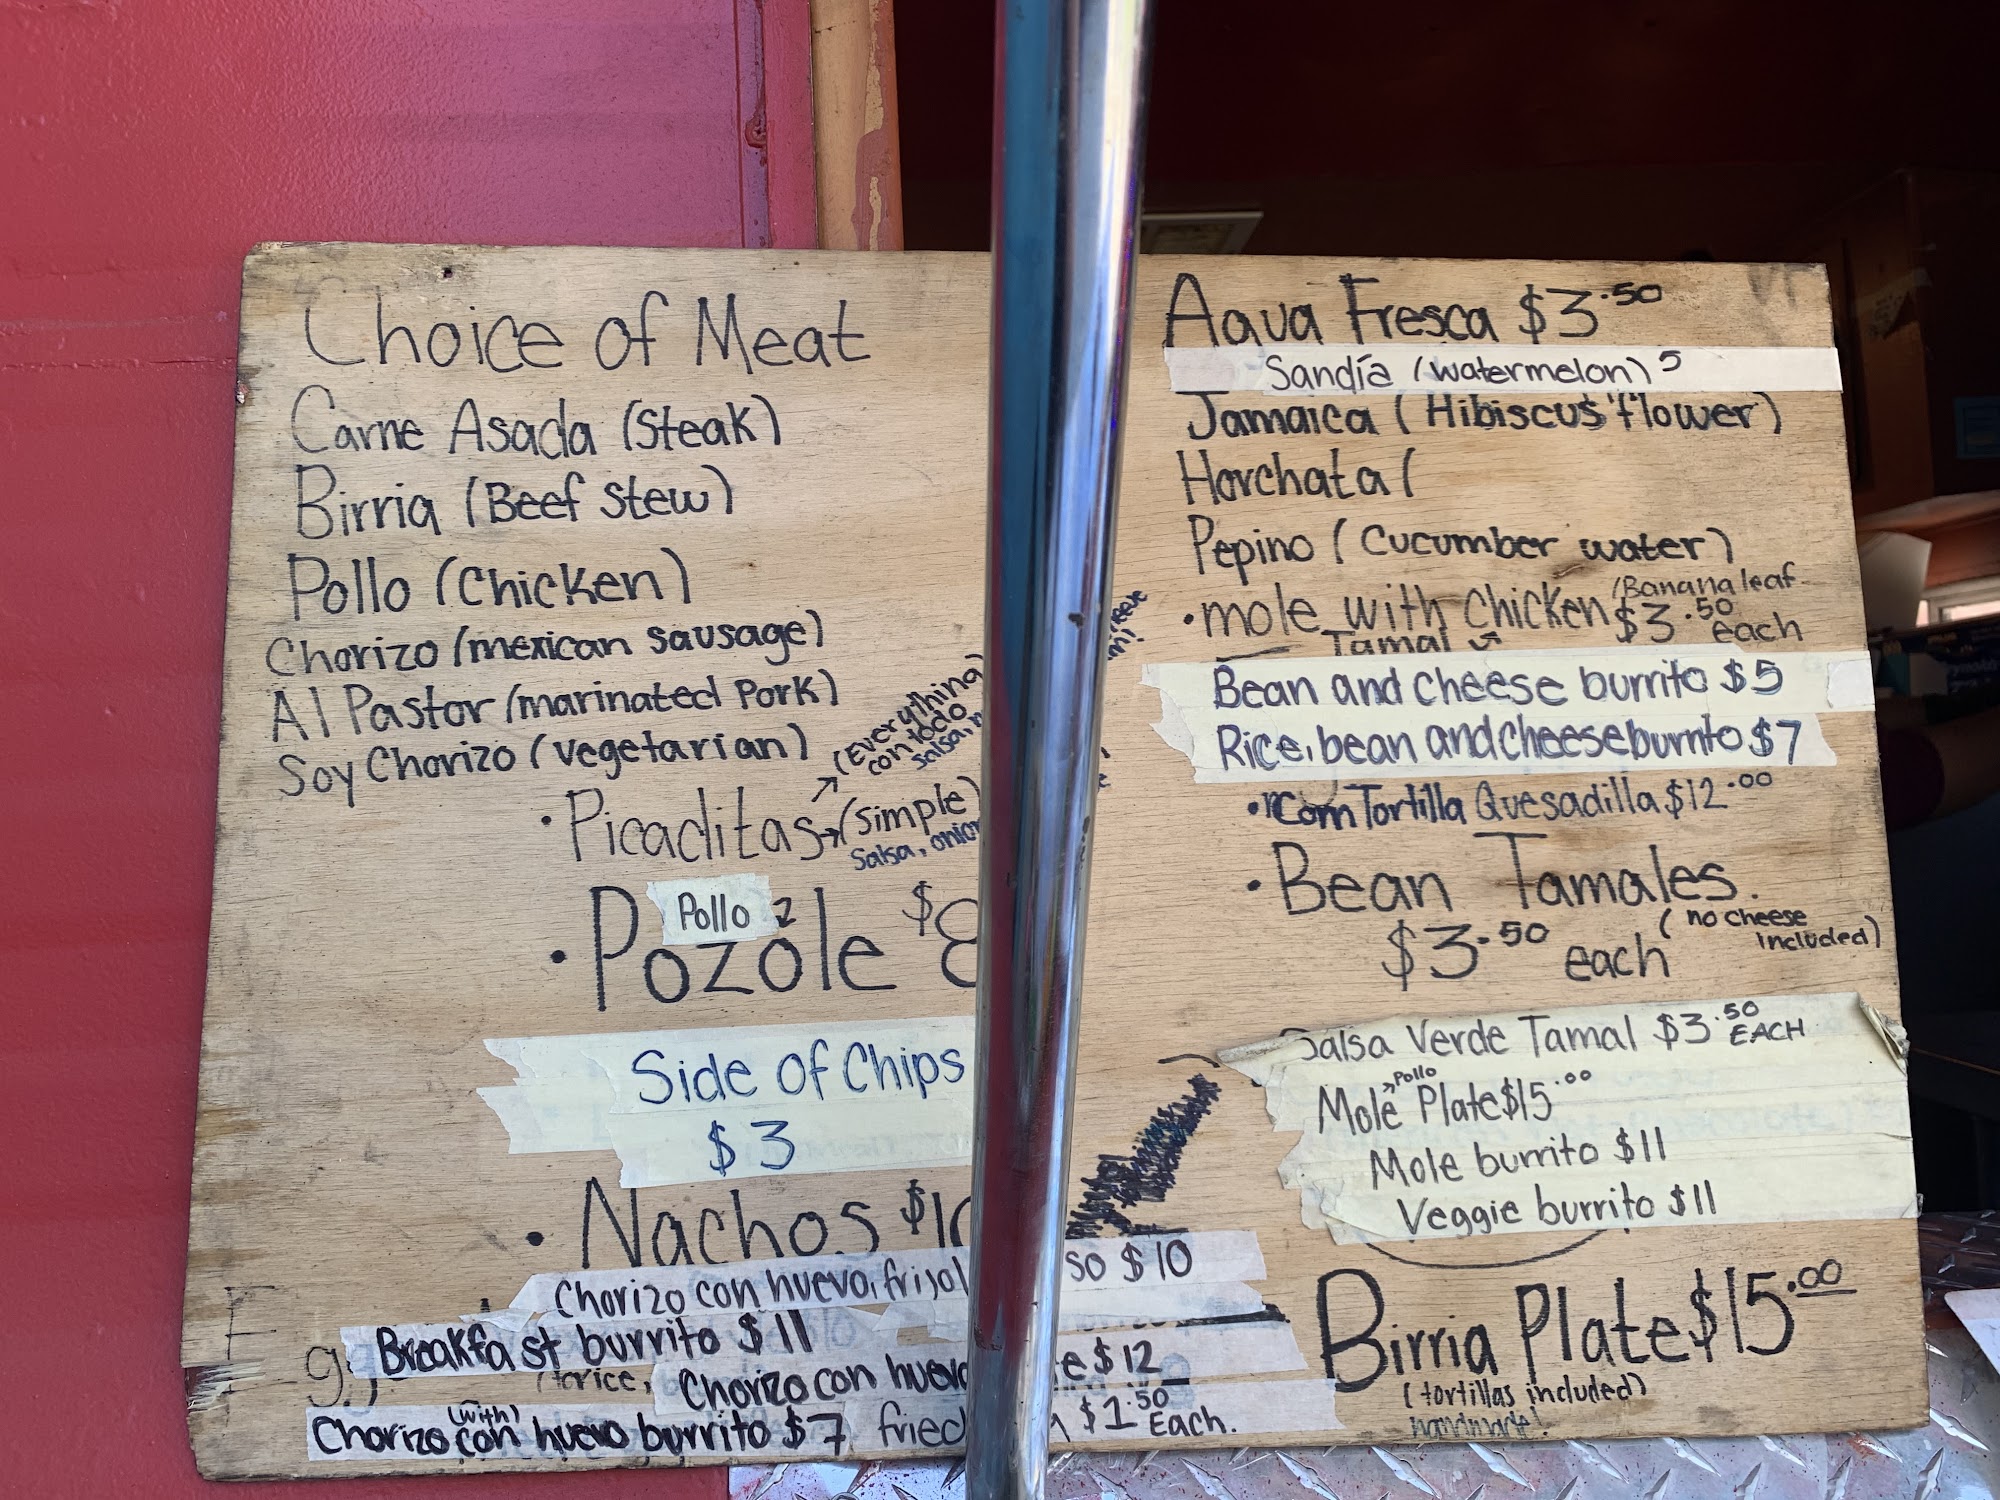 Choice of Meat
Carne Asada (Steak)
Birria (Beef Stew)
Pollo (Chicken)
Chorizo (mexican sausage)
Al Pastor (marinated Pork)
Soy Chorizo (vegetarian)
(Everything
con todo
salsa,
• Picaditas → (simple)
Salsa, onion
Pollo 2
• Pozole $8
Side of Chips
$3
• Nachos $10
Chorizo con huevo, frijol so $10
Breakfast burrito $11
rice,
Chorizo con huevo e $12
(with)
Chorizo con huevo burrito $7 fried $1.50 Each.
Aqua Fresca $3.50
Sandía (watermelon) 5
Jamaica (Hibiscus flower)
Horchata (
Pepino (Cucumber water)
(Banana leaf
• mole with chicken $3.50 each
Tamal
Bean and cheese burrito $5
Rice, bean and cheese burrito $7
• Corn Tortilla Quesadilla $12.00
• Bean Tamales.
$3.50 each (no cheese
included)
Salsa Verde Tamal $3.50 EACH
Pollo
Mole Plate $15.00
Mole burrito $11
Veggie burrito $11
Birria Plate $15.00
(tortillas included)
handmade!